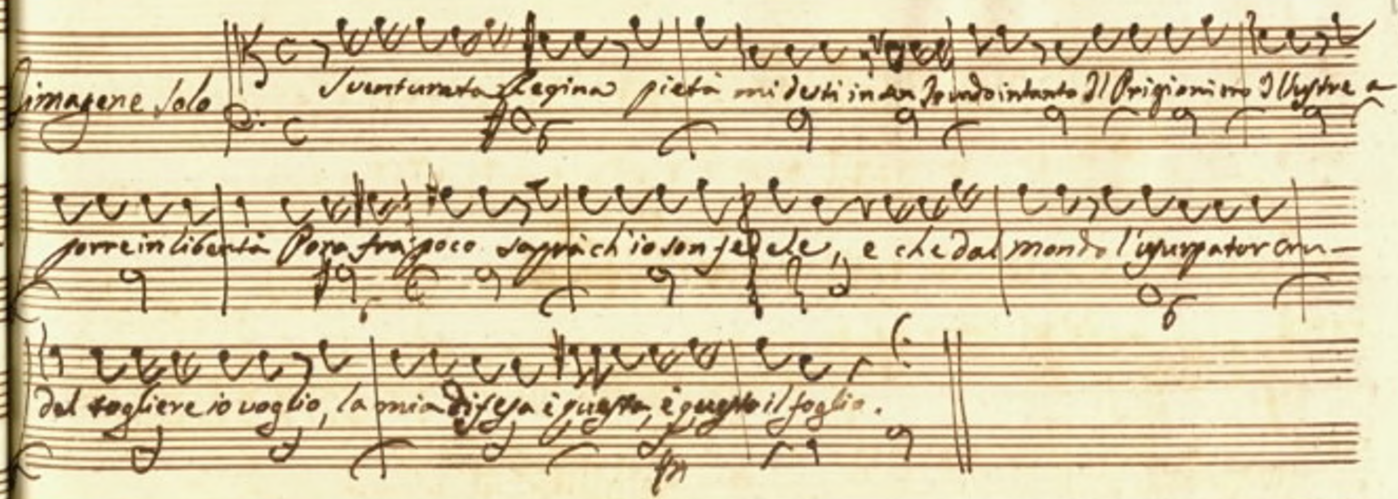 imagene solo
Sventurata Regina pietà mi desti in sen Io vado intanto Il Prigioniero Illustre a
porre in libertà Pora frà poco saprà ch'io son fedele, e che dal mondo l'usurpator cru-
del togliere io voglio, la mia difesa è questa, è questo il foglio.